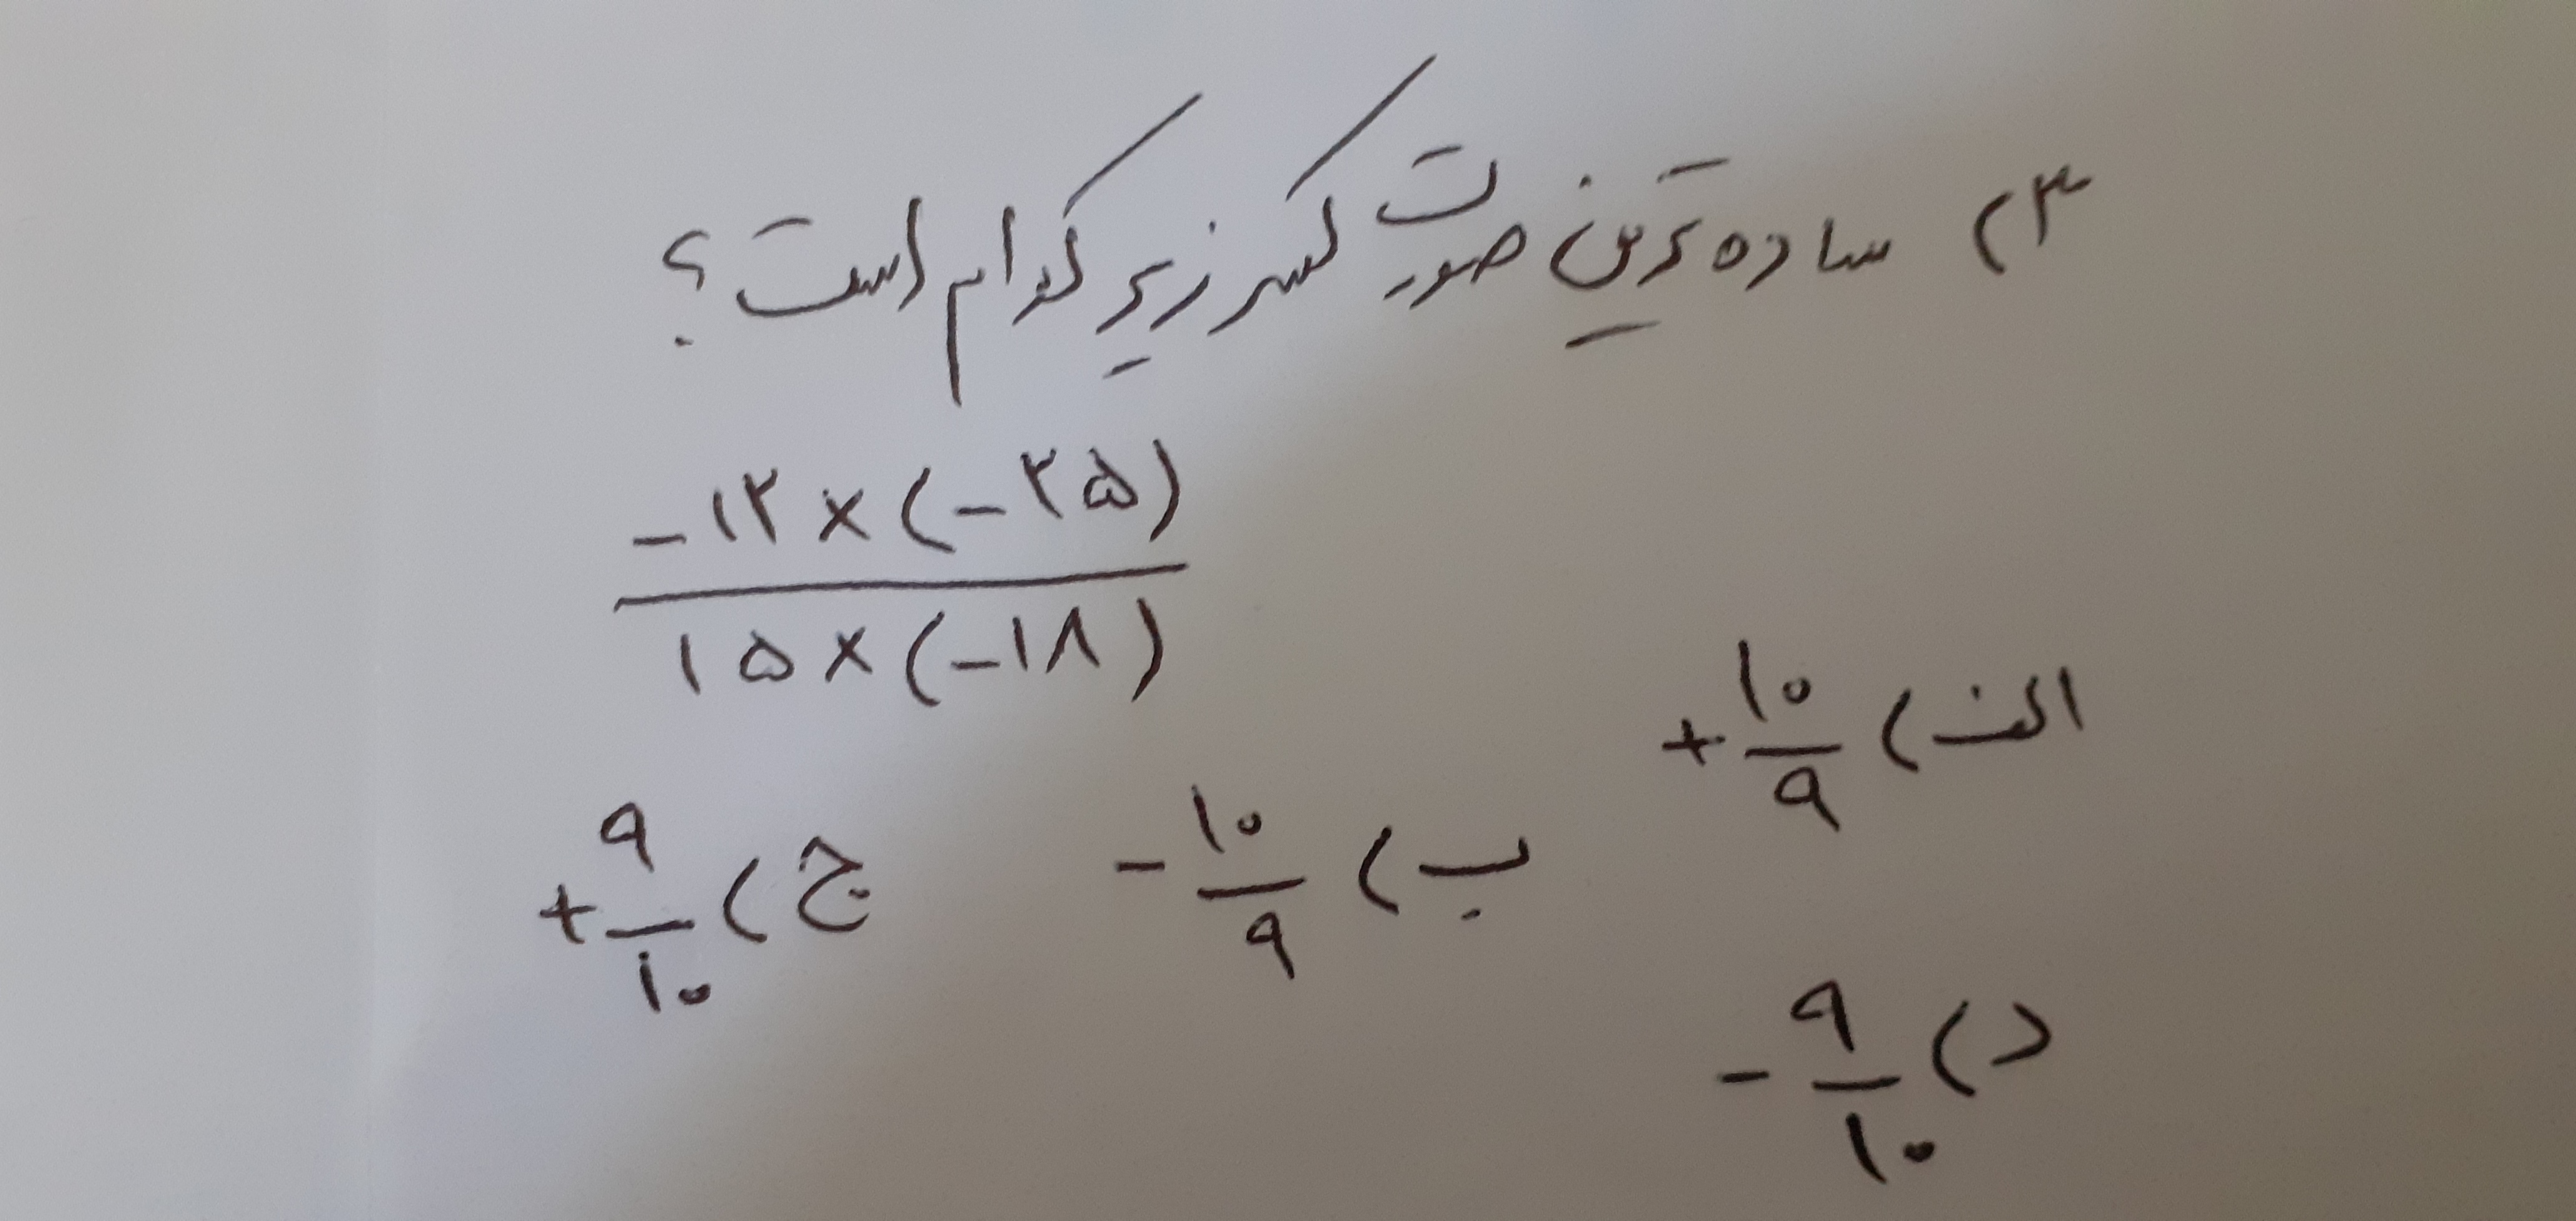 ۳) ساده ترین صورت کسر زیر کدام است؟
-۱۲×(-۲۵)
۱۵×(-۱۸)
الف) +۱۰/۹
ب) -۱۰/۹ ج) +۹/۱۰
د) -۹/۱۰